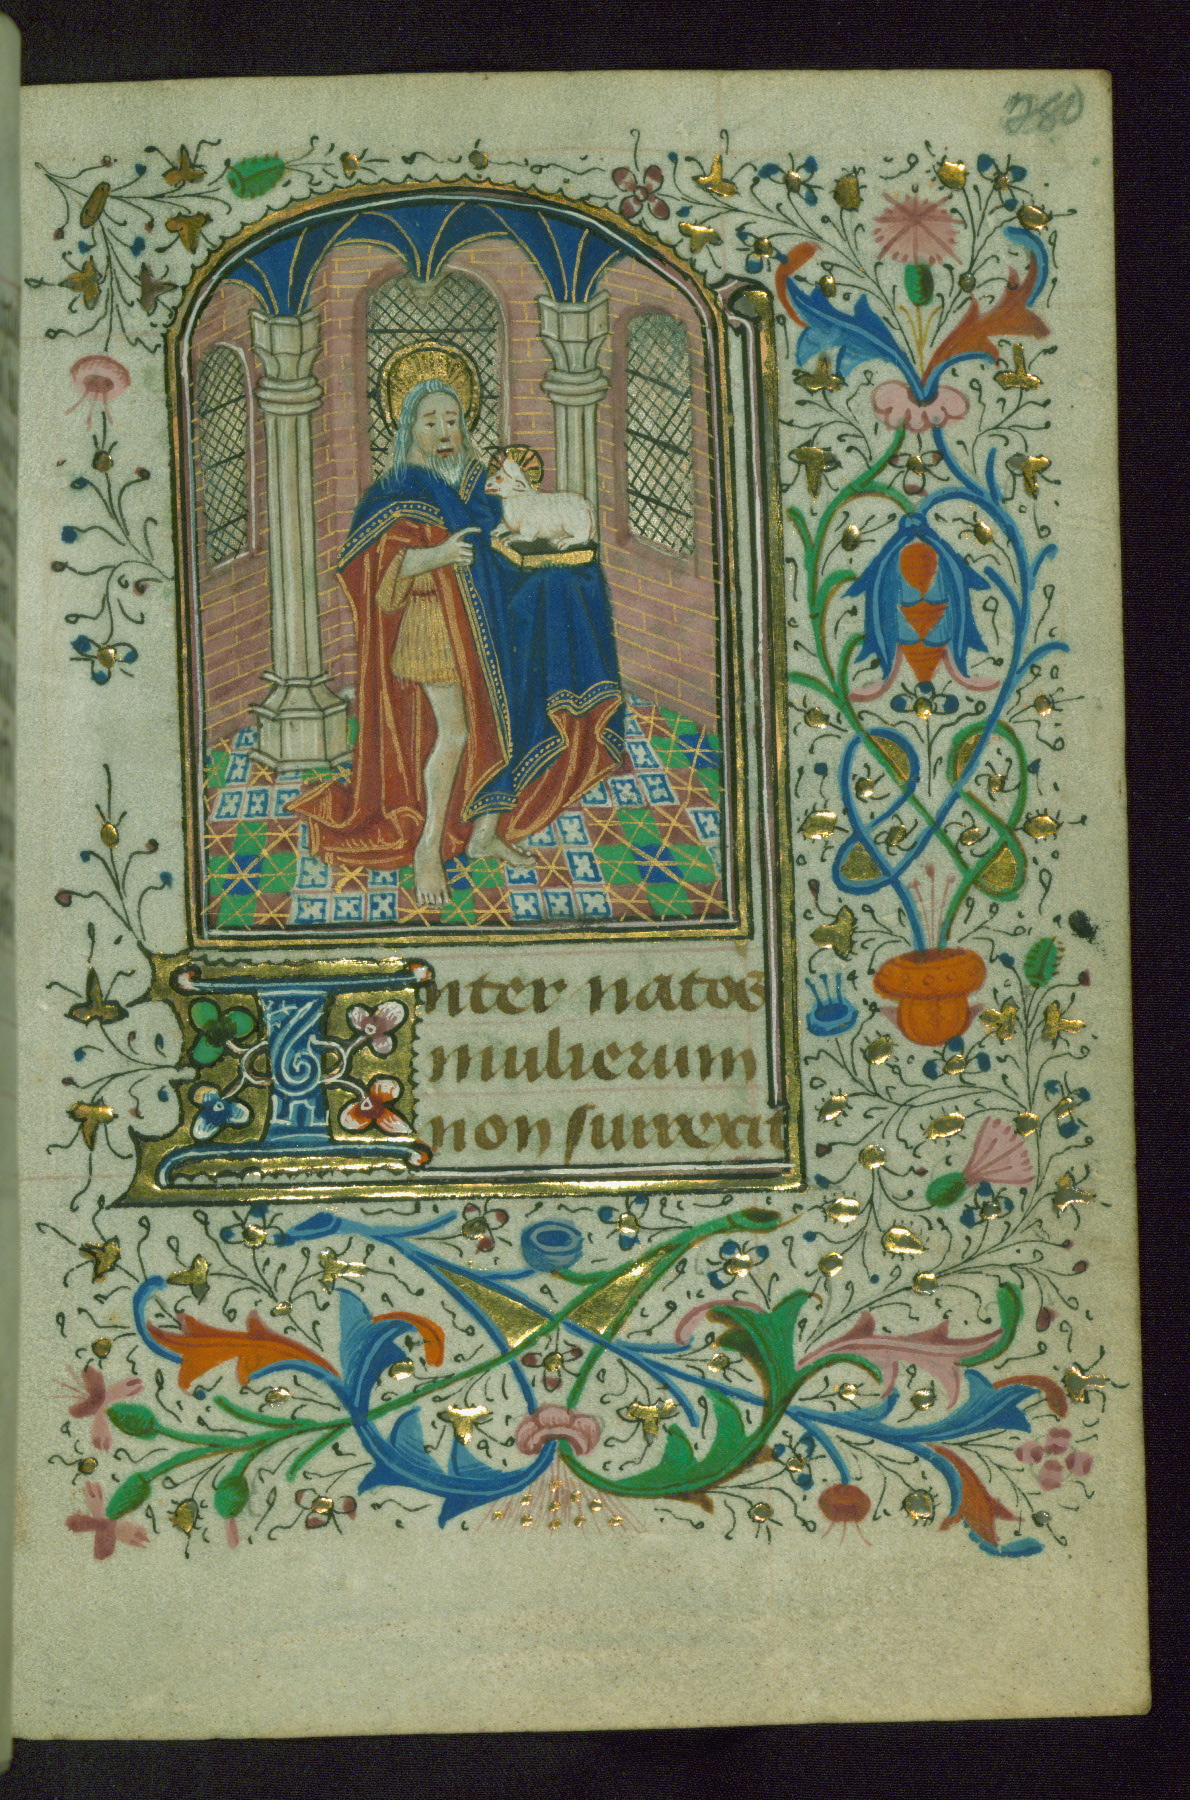 280
Inter natos
mulierum
non surrexit